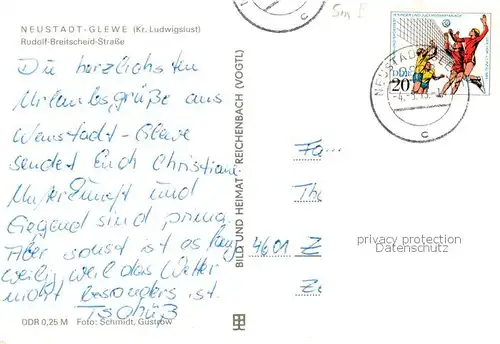 NEUSTADT-GLEWE (Kr. Ludwigslust)
Rudolf-Breitscheid-Straße
Die herzlichsten
Urlaubsgrüße aus
Neustadt-Glewe
sendet Euch Christiane.
Unterkunft und
Gegend sind prima.
Aber sonst ist es lang
weilig weil das Wetter
nicht besonders ist.
Tschüß
DDR 0,25 M Foto: Schmidt, Güstrow
BILD UND HEIMAT · REICHENBACH (VOGTL)
DDR
20
NEUSTADT
c
c
Fa...
Th
4601 Z
Ze
privacy protection
Datenschutz